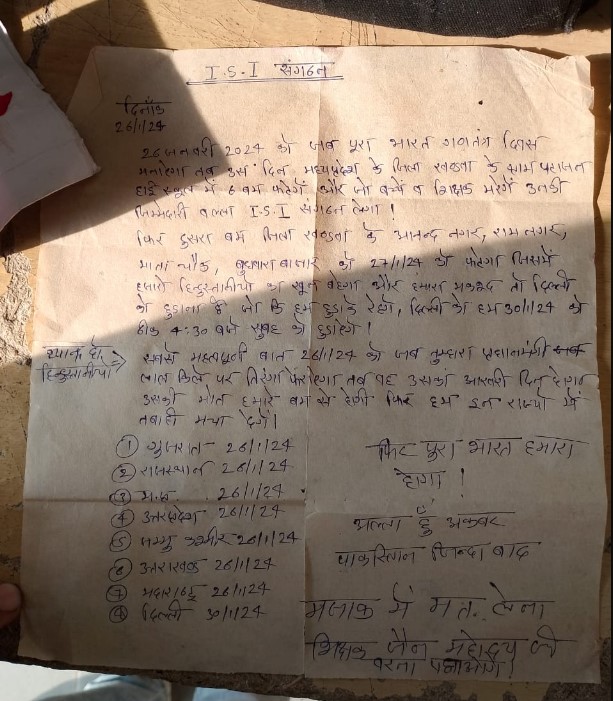 I.S.I संगठन
दिनांक
26/1/24
26 जनवरी 2024 को जब पूरा भारत गणतंत्र दिवस
मनाऐगा तब उस दिन मध्यप्रदेश के जिला खण्डवा के ग्राम
हाई स्कूल में 6 बम फटेगें और जो बच्चे व शिक्षक मरेगें उनकी
जिम्मेदारी I.S.I संगठन लेगा !
फिर दुसरा बम जिला खण्डवा के आनन्द नगर, राम नगर,
माता चौक, बुधवारा बाजार को 27/1/24 को फटेगा जिसमें
हजारो हिन्दुस्तानीयो का खून बहेगा और हमारा मकसद तो दिल्ली
को उडाना है जो कि हम उडाके रहेगे, दिल्ली को हम 30/1/24 को
ठीक 4:30 बजे सुबह को उडाऐगे !
ध्यान दो
हिन्दुस्तानीयो
सबसे महत्वपूर्ण बात 26/1/24 को जब तुम्हारा प्रधानमंत्री
लाल किले पर तिरंगा तब वह उसका आखरी दिन होगा
उसकी मौत हमारे बम से होगी फिर हम इन राज्यो में
तबाही मचा देगें।
① गुजरात - 26/1/24
② राजस्थान 26/1/24
③ म.प्र. 26/1/24
④ उत्तरप्रदेश 26/1/24
⑤ जम्मु कश्मीर 26/1/24
⑥ उत्तराखण्ड 26/1/24
⑦ महाराष्ट्र 26/1/24
दिल्ली 30/1/24
फिर पुरा भारत हमारा
होगा !
अल्ला हुँ अकबर
पाकिस्तान जिन्दा बाद
मजाक में मत. लेना
शिक्षक जैन महोदय जी
वरना पछताओगे !